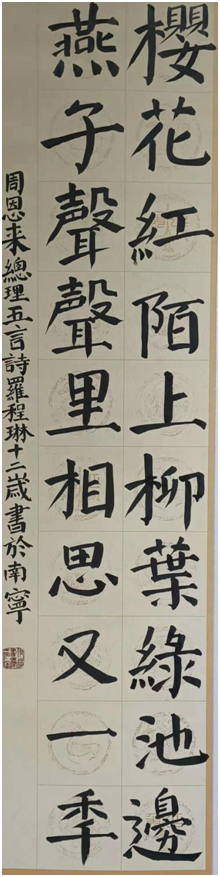 櫻花紅陌上柳葉綠池邊
燕子聲聲里相思又一季
周恩来總理五言詩羅程琳十二歲書於南寧